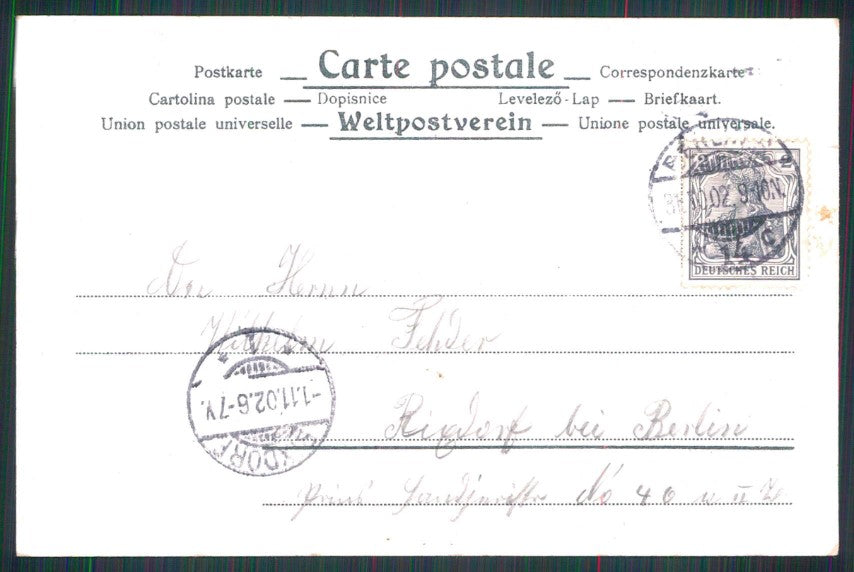 Postkarte — Carte postale — Correspondenzkarte
Cartolina postale — Dopisnice Levelező-Lap — Briefkaart.
Union postale universelle — Weltpostverein — Unione postale universale.
2 2
.10.02. 9-10N.
14 c
DEUTSCHES REICH
Herrn
Wilhelm Fehder
-1.11.02.6-7V.
RIXDORF
Rixdorf bei Berlin
No 40